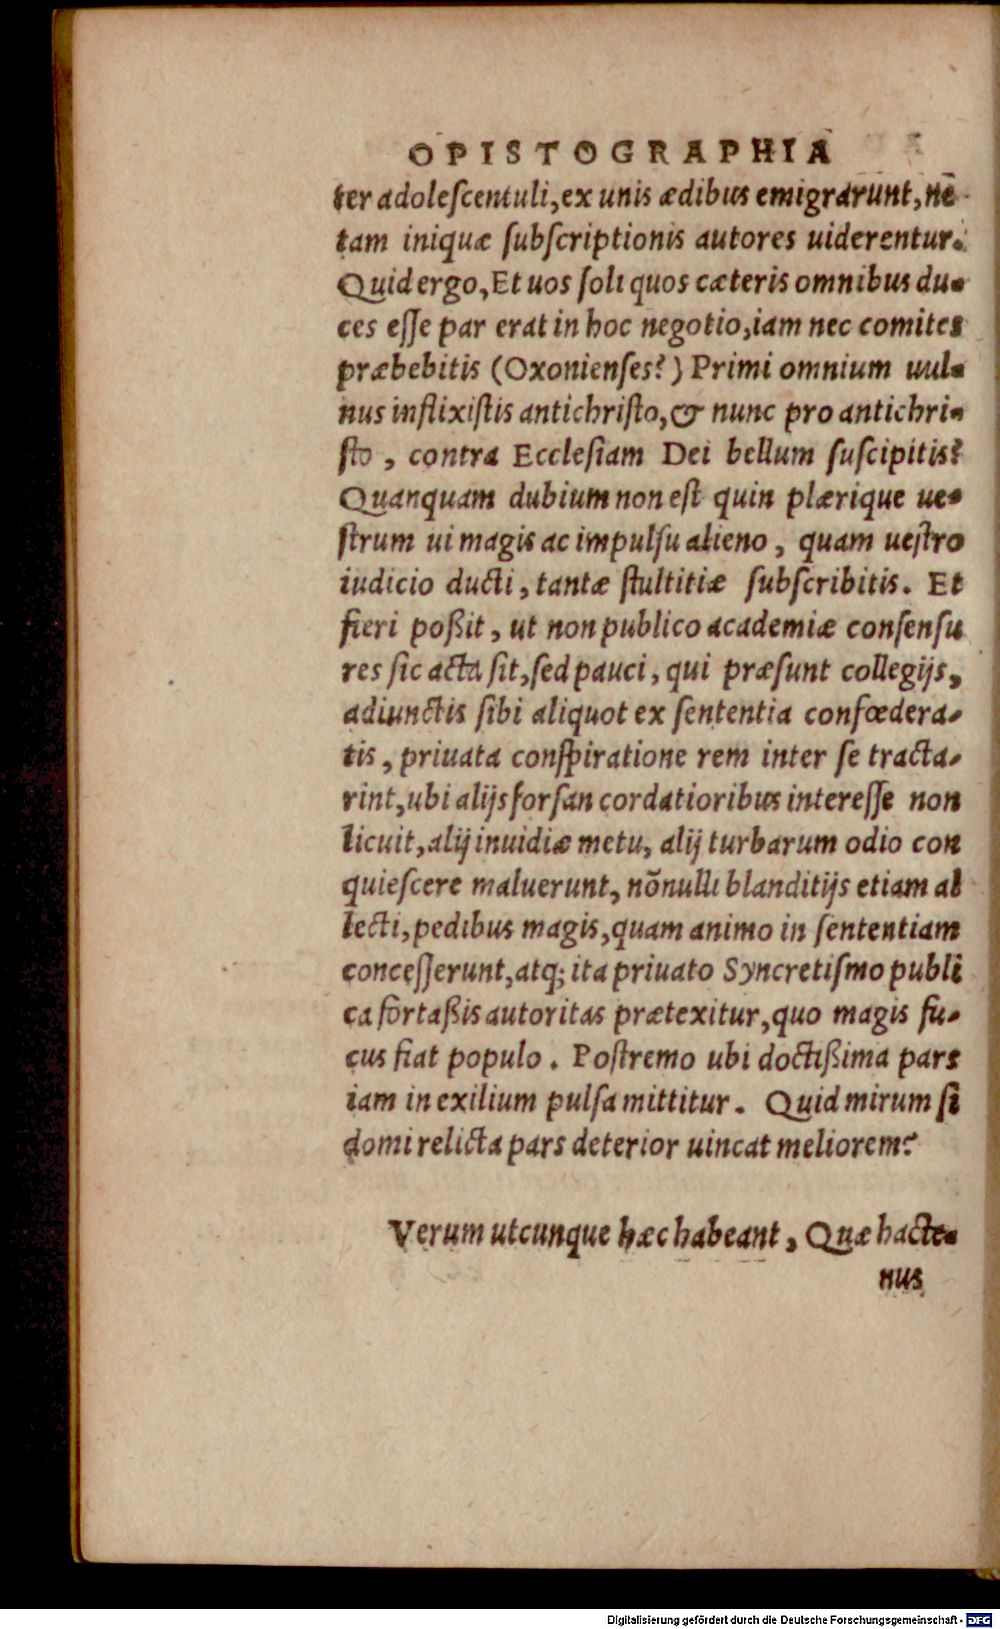 OPISTOGRAPHIA
ter adoleſcentuli, ex unis ædibus emigrarunt, nē
tam iniquæ ſubſcriptionis autores uiderentur.
Quid ergo, Et uos ſoli quos cæteris omnibus du-
ces eſſe par erat in hoc negotio, iam nec comites
præbebitis (Oxonienſes?) Primi omnium uul-
nus inflixiſtis antichriſto, & nunc pro antichri-
ſto, contra Eccleſiam Dei bellum ſuſcipitis?
Quanquam dubium non eſt quin plærique ue-
ſtrum ui magis ac impulſu alieno, quam ueſtro
iudicio ducti, tantæ ſtultitiæ ſubſcribitis. Et
fieri poßit, ut non publico academiæ conſenſu
res ſic acta ſit, ſed pauci, qui præſunt collegijs,
adiunctis ſibi aliquot ex ſententia confœdera-
tis, priuata conſpiratione rem inter ſe tracta-
rint, ubi alijs forſan cordatioribus intereſſe non
licuit, alij inuidiæ metu, alij turbarum odio con
quieſcere maluerunt, nõnulli blanditijs etiam al
lecti, pedibus magis, quam animo in ſententiam
conceſſerunt, atq; ita priuato Syncretiſmo publi
ca fortaßis autoritas prætexitur, quo magis fu-
cus fiat populo. Poſtremo ubi doctißima pars
iam in exilium pulſa mittitur. Quid mirum ſi
domi relicta pars deterior uincat meliorem?
Verum utcunque hæc habeant, Quæ hacte-
nus
Digitalisierung gefördert durch die Deutsche Forschungsgemeinschaft - DFG